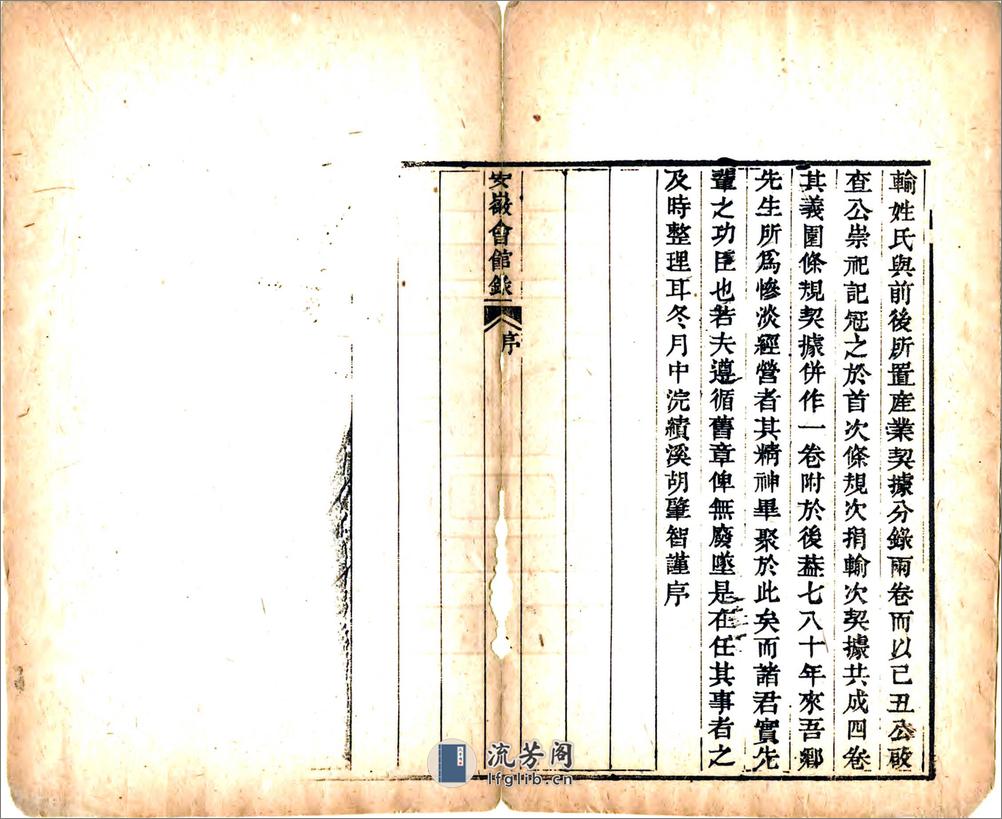 輸姓氏與前後所置産業契據分錄兩卷而以己丑公啟
查公崇祀記冠之於首次條規次捐輸次契據共成四卷
其義園條規契據併作一卷附於後葢七八十年來吾鄉
先生所爲慘淡經營者其精神畢聚於此矣而諸君實先
輩之功臣也若夫遵循舊章俾無廢墜是在任其事者之
及時整理耳冬月中浣績溪胡肇智謹序
安徽會館錄
序
流芳阁
lfglib.cn